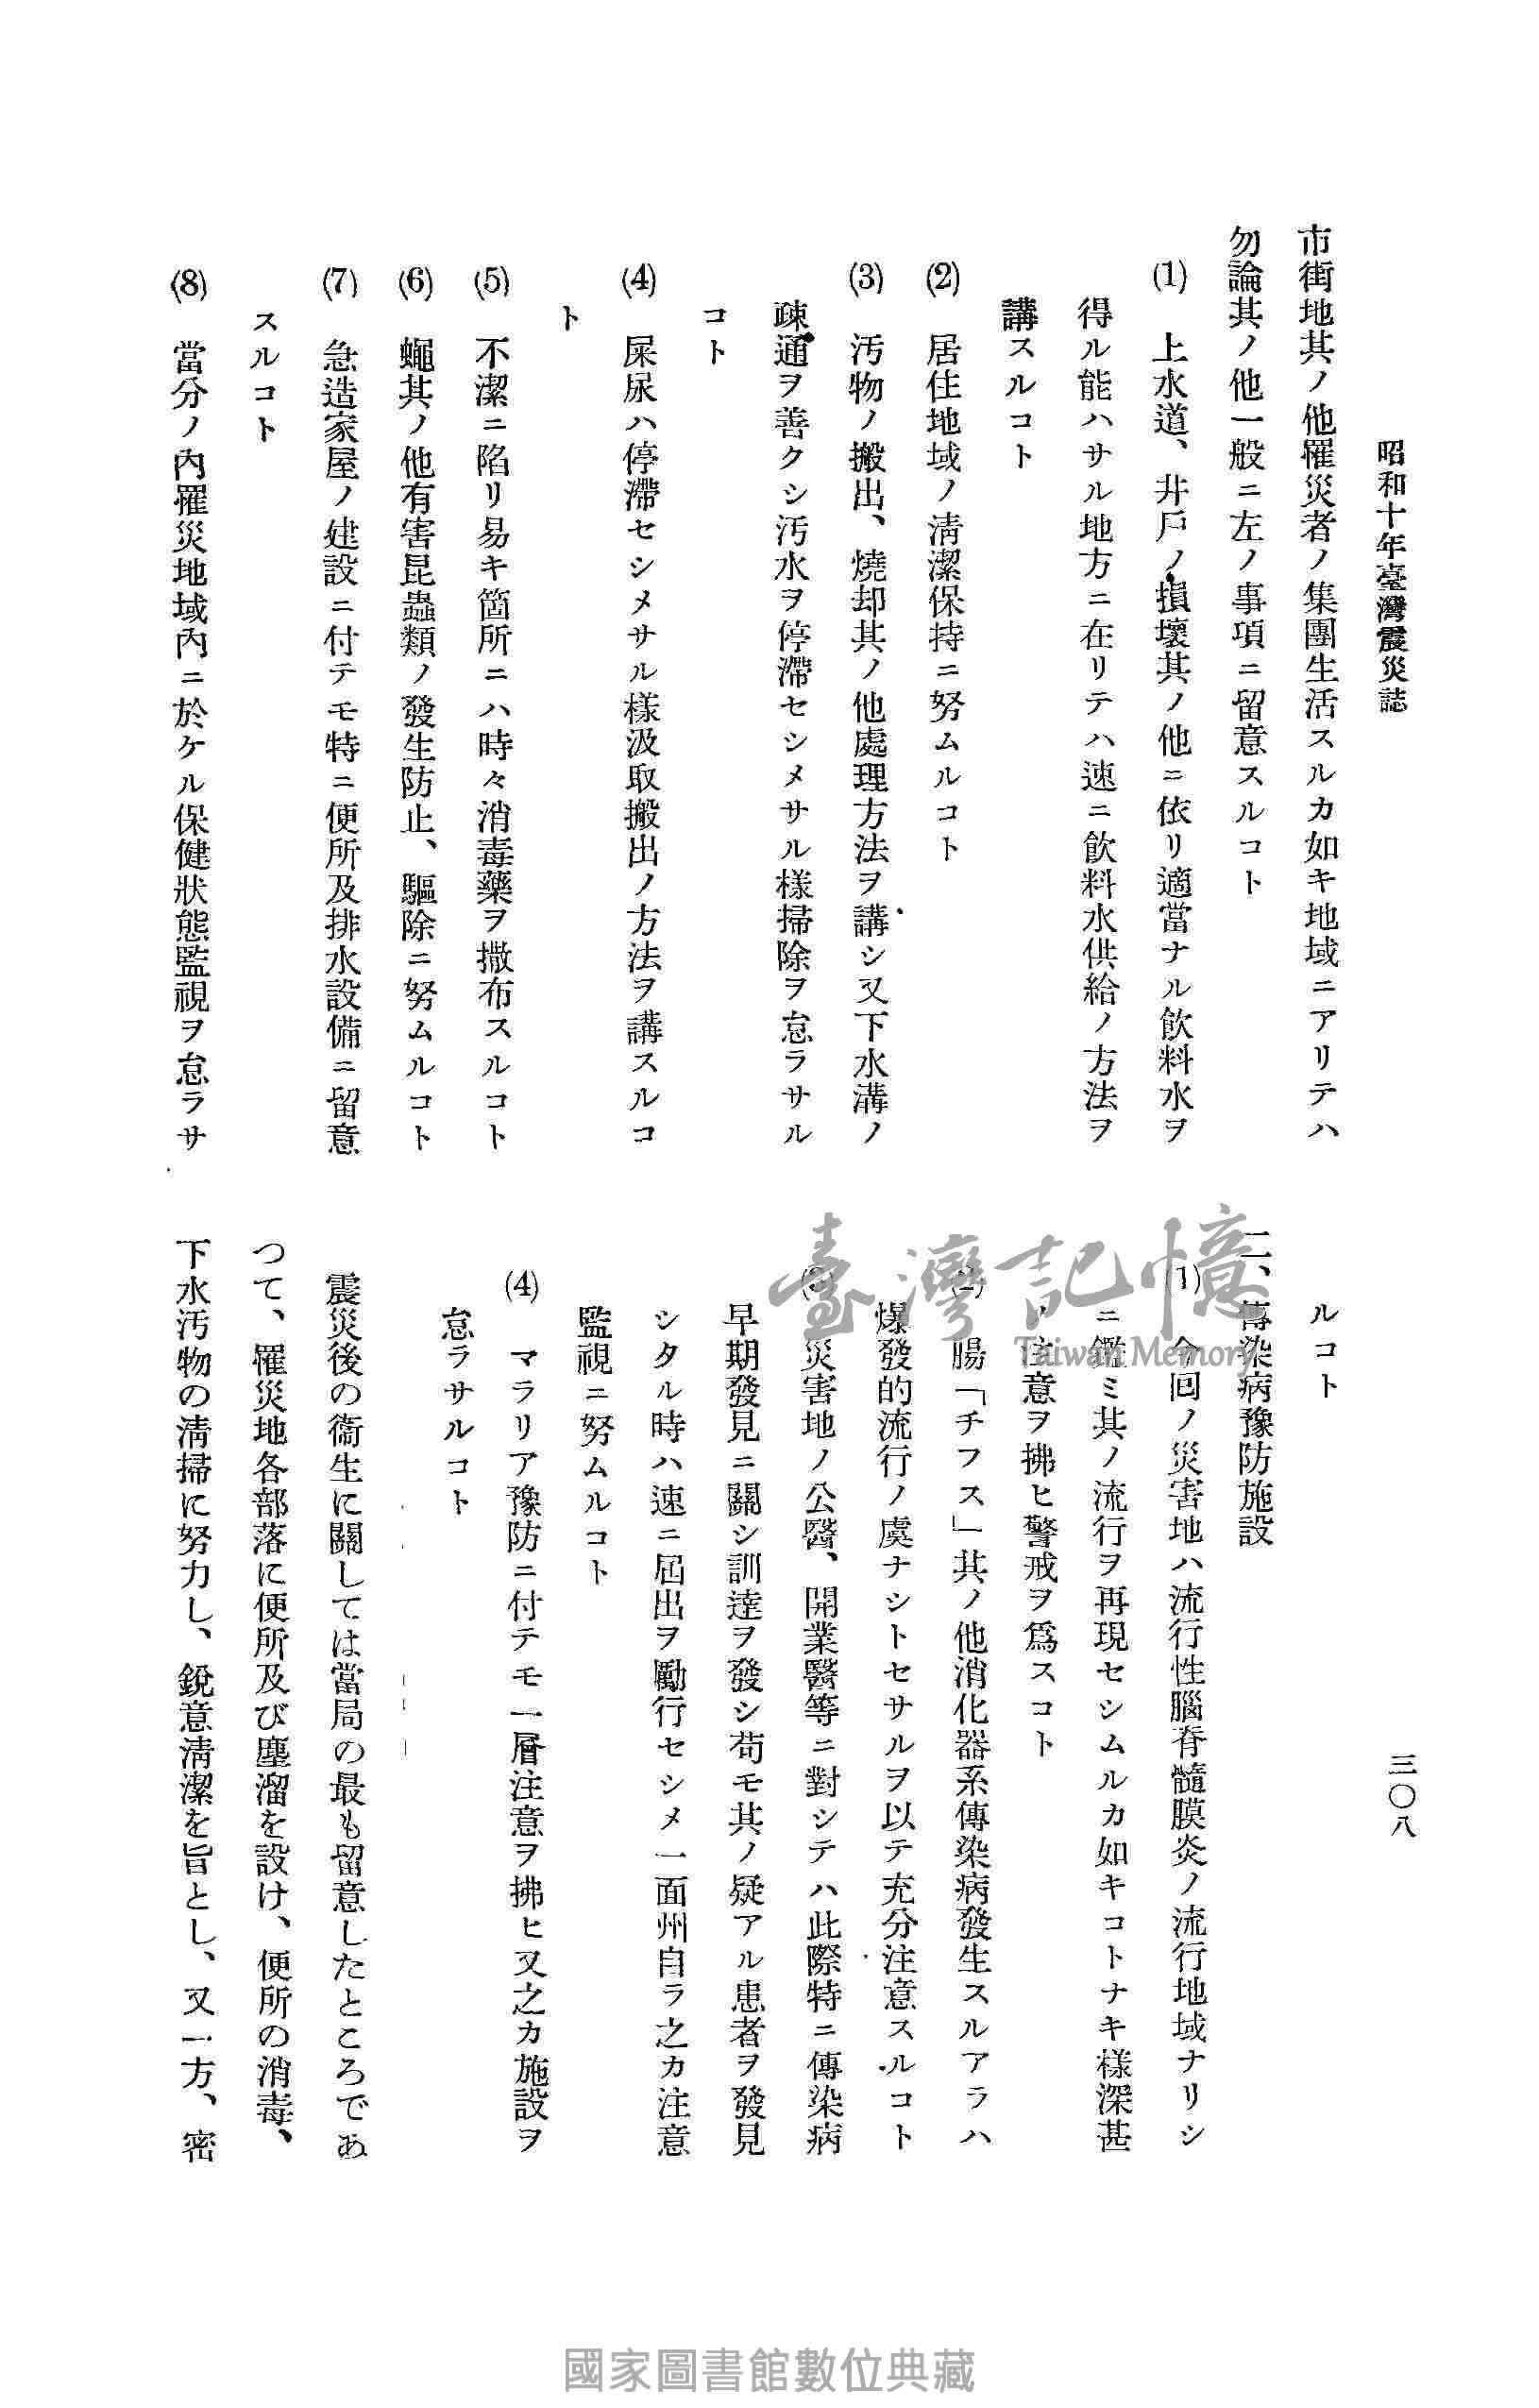 昭和十年臺灣震災誌
三〇八
市街地其ノ他罹災者ノ集團生活スルカ如キ地域ニアリテハ
勿論其ノ他一般ニ左ノ事項ニ留意スルコト
(1) 上水道、井戸ノ損壞其ノ他ニ依リ適當ナル飮料水ヲ
得ル能ハサル地方ニ在リテハ速ニ飮料水供給ノ方法ヲ
講スルコト
(2) 居住地域ノ淸潔保持ニ努ムルコト
(3) 汚物ノ搬出、燒却其ノ他處理方法ヲ講シ又下水溝ノ
疎通ヲ善クシ汚水ヲ停滯セシメサル樣掃除ヲ怠ラサル
コト
(4) 屎尿ハ停滯セシメサル樣汲取搬出ノ方法ヲ講スルコ
ト
(5) 不潔ニ陷リ易キ箇所ニハ時々消毒藥ヲ撒布スルコト
(6) 蠅其ノ他有害昆蟲類ノ發生防止、驅除ニ努ムルコト
(7) 急造家屋ノ建設ニ付テモ特ニ便所及排水設備ニ留意
スルコト
(8) 當分ノ內罹災地域內ニ於ケル保健狀態監視ヲ怠ラサ
ルコト
二、傳染病豫防施設
(1) 今回ノ災害地ハ流行性腦脊髓膜炎ノ流行地域ナリシ
ニ鑑ミ其ノ流行ヲ再現セシムルカ如キコトナキ樣深甚
ノ注意ヲ拂ヒ警戒ヲ爲スコト
(2) 腸「チフス」其ノ他消化器系傳染病發生スルアラハ
爆發的流行ノ虞ナシトセサルヲ以テ充分注意スルコト
(3) 災害地ノ公醫、開業醫等ニ對シテハ此際特ニ傳染病
早期發見ニ關シ訓達ヲ發シ苟モ其ノ疑アル患者ヲ發見
シタル時ハ速ニ屆出ヲ勵行セシメ一面州自ラ之カ注意
監視ニ努ムルコト
(4) マラリア豫防ニ付テモ一層注意ヲ拂ヒ又之カ施設ヲ
怠ラサルコト
震災後の衞生に關しては當局の最も留意したところであ
つて、罹災地各部落に便所及び塵溜を設け、便所の消毒、
下水汚物の淸掃に努力し、銳意淸潔を旨とし、又一方、密
臺灣記憶
Taiwan Memory
國家圖書館數位典藏